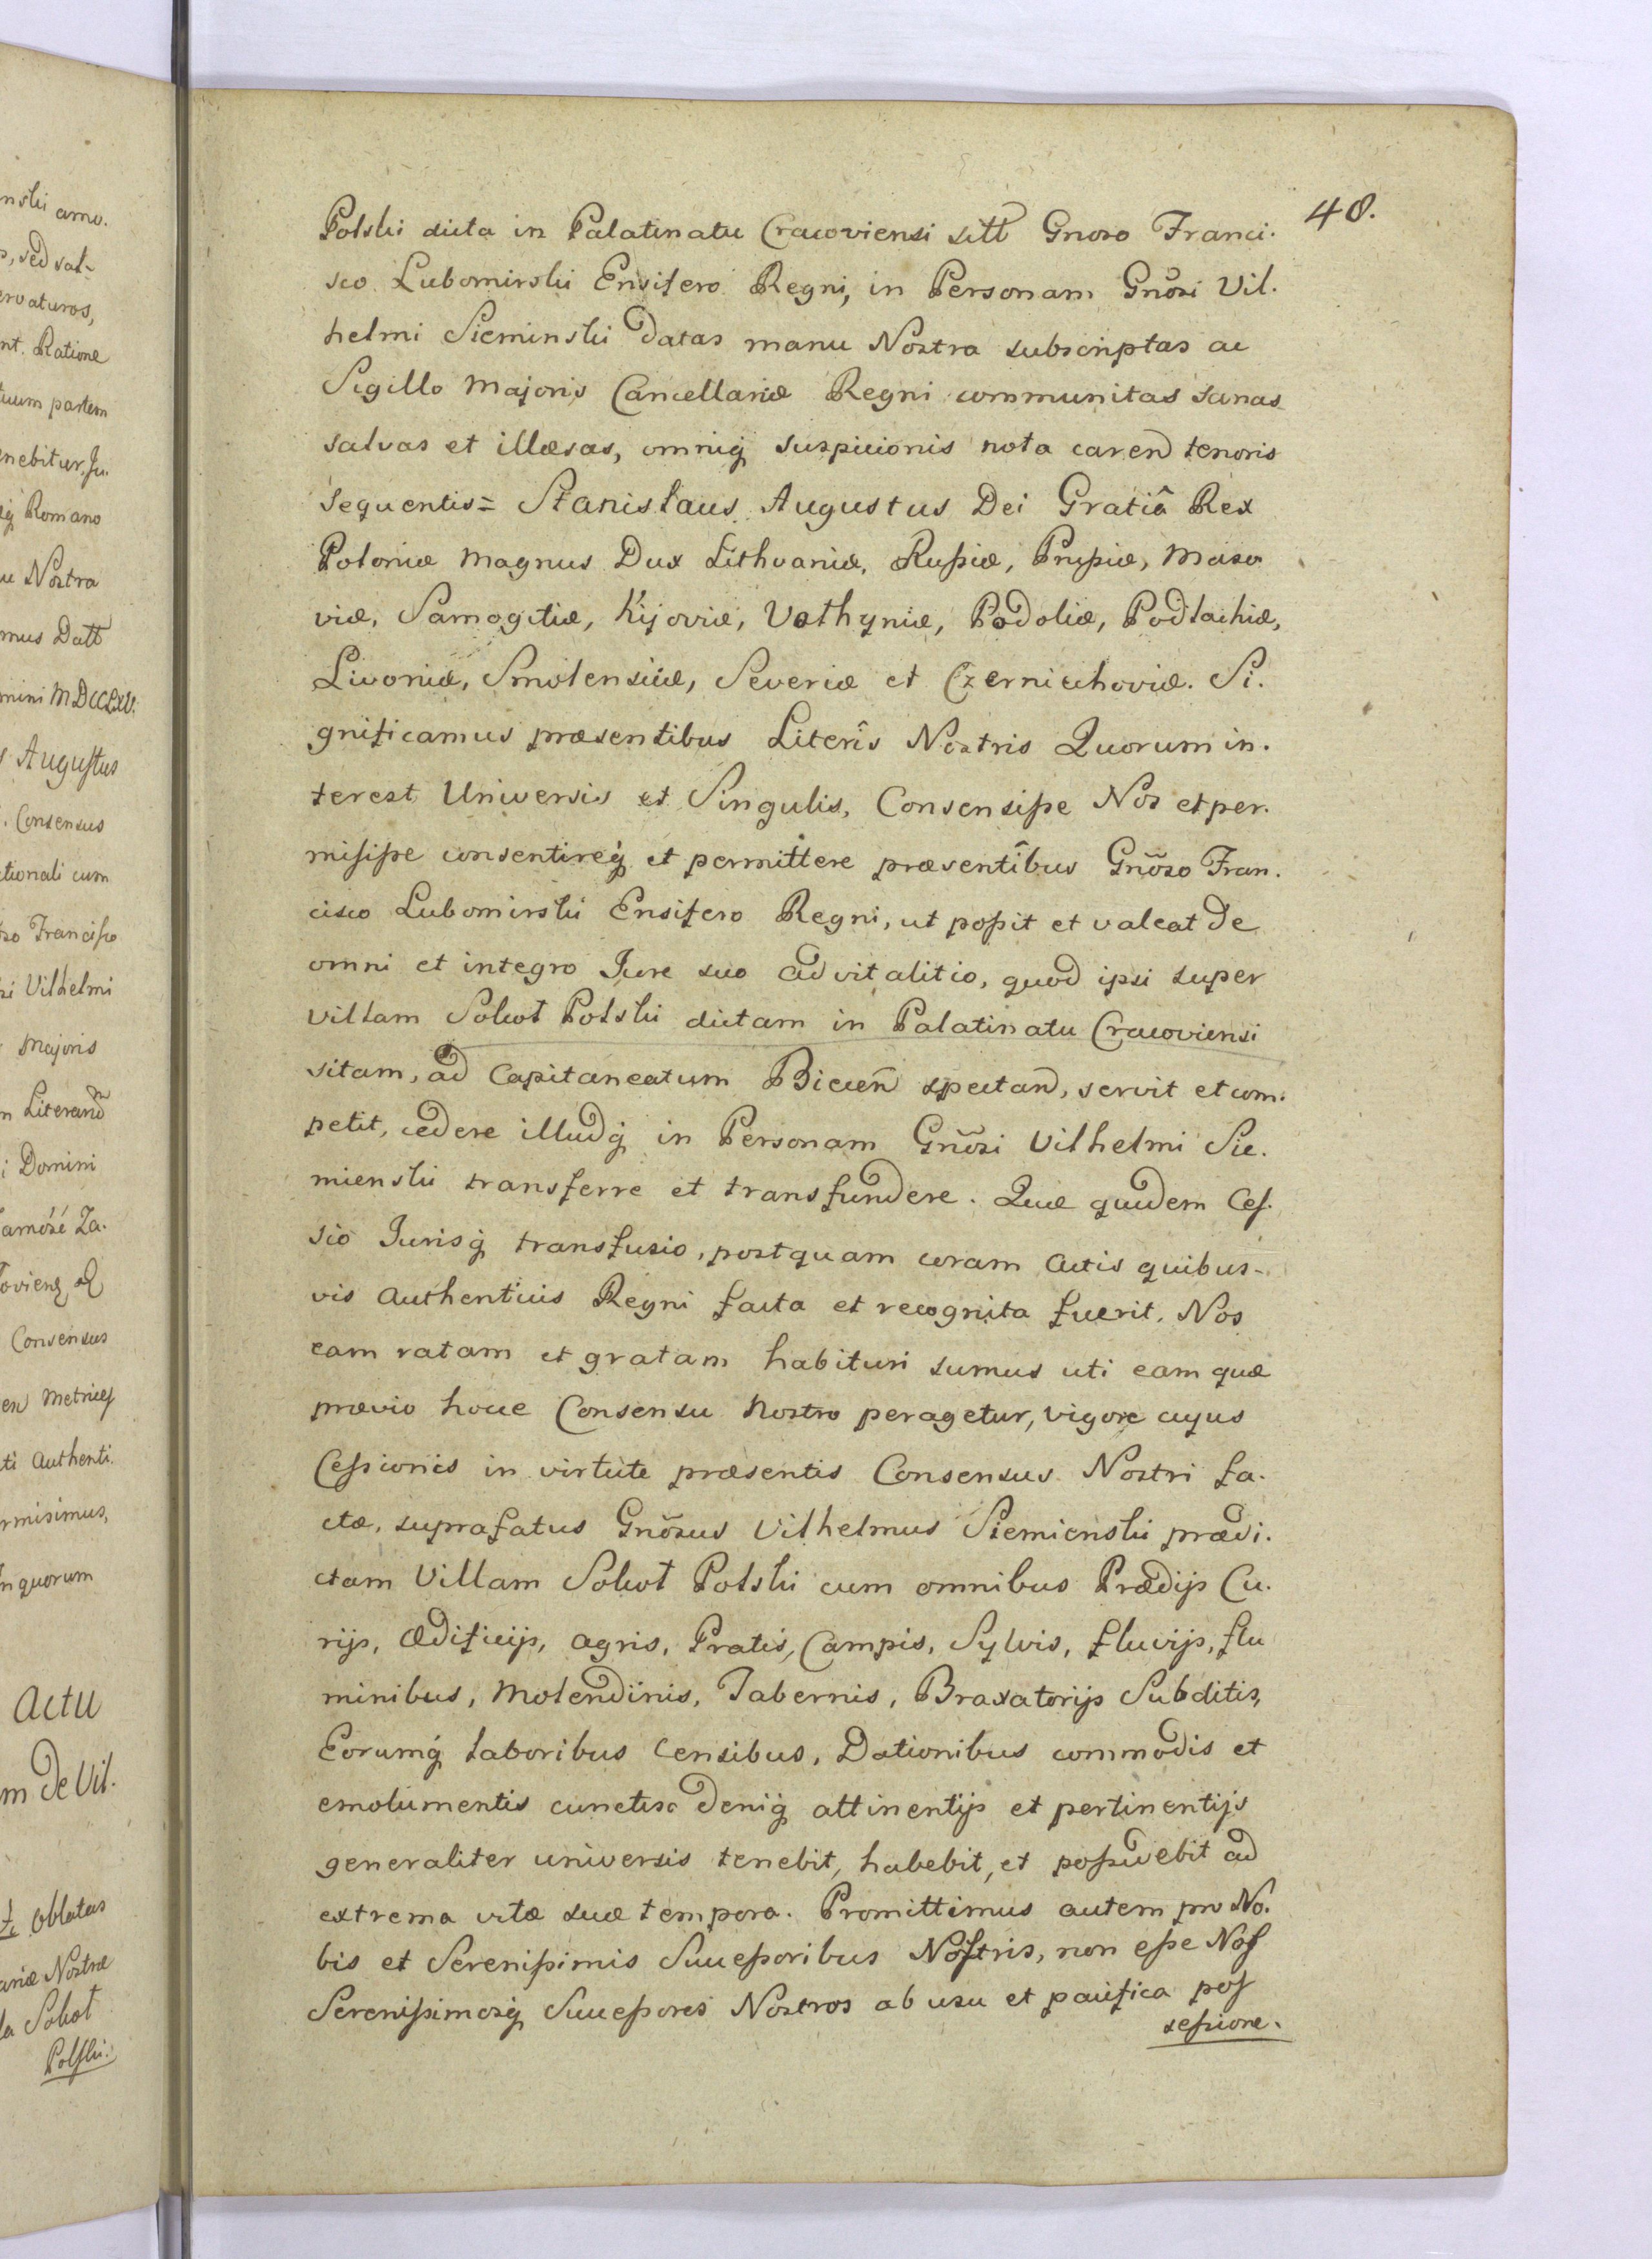 48.
Polski dicta in Palatinatu Cracoviensi sitt Gnoso Franci.
sco Lubomirski Ensifero Regni, in Personam Gnõsi Vil.
helmi Sieminski datas manu Nostra subscriptas ac
Sigillo Majoris Cancellariæ Regni communitas sanas
salvas et illæsas, omniq̨ suspicionis nota carend tenoris
sequentis= Stanislaus Augustus Dei Gratiâ Rex
Poloniæ Magnus Dux Lithvaniæ, Rußiæ, Prußiæ, Maso
viæ, Samogitiæ, Kijoviæ, Volhyniæ, Podoliæ, Podlachiæ,
Livoniæ, Smolensciæ, Severiæ et Czerniechoviæ. Si.
gnificamus præsentibus Literîs Nostris Quorum in.
terest Universis et Singulis, Consensiße Nos et per.
misiße consentireq̨ et permittere præsentibus Gnõso Fran.
cisco Lubomirski Ensifero Regni, ut poßit et valeat de
omni et integro Jure suo advitalitio, quod ipsi super
villam Solcot Polski dictam in Palatinatu Cracoviensi
sitam, ad Capitaneatum Biecen̄ spectand, servit et com.
petit, cedere illudq̨ in Personam Gnõsi Vilhelmi Sie.
mienski transferre et transfundere. Quæ quidem Ces.
sio Jurisq̨ transfusio, postquam coram Actis quibus-
vis Authenticis Regni facta et recognita fuerit, Nos
eam ratam et gratam habituri sumus uti eam quæ
prævio hocce Consensu Nostro peragetur, vigore cujus
Ceßionis in virtute præsentis Consensus Nostri fa.
ctæ, suprafatus Gnõsus Vilhelmus Siemienski prædi.
ctam Villam Solcot Polski cum omnibus Prædijs Cu.
rijs, Ædificijs, Agris, Pratis, Campis, Sylvis, fluvijs, flu
minibus, Molendinis, Tabernis, Braxatorijs Subditis,
Eorumq̨ laboribus Censibus, Dationibus commodis et
emolumentis cunctisq̨ deniq̨ attinentijs et pertinentijs
generaliter universis tenebit, habebit, et poßidebit ad
extrema vitæ suæ tempora. Promittimus autem pro No.
bis et Serenißimis Succeßoribus Nostris, non eße Nos
Serenißimosq̨ Succeßores Nostros ab usu et pacifica pos
seßione.
nski amo.
, sed sal-
ervaturos,
nt. Ratione
tuum partem
enebitur, Ju.
q̨ Romano
u Nostra
mus Datt
mini MDCCLXV.
s Augustus
. Consensus
ctionali cum
so Francisco
si Vilhelmi
Majoris
n Literand
i Domini
Zamość Za.
Consensus
en Metrices
ti Authenti.
rmisimus,
n quorum
Actu
m de Vil.
Oblatas
ariæ Nostræ
la Solcot
Polski.